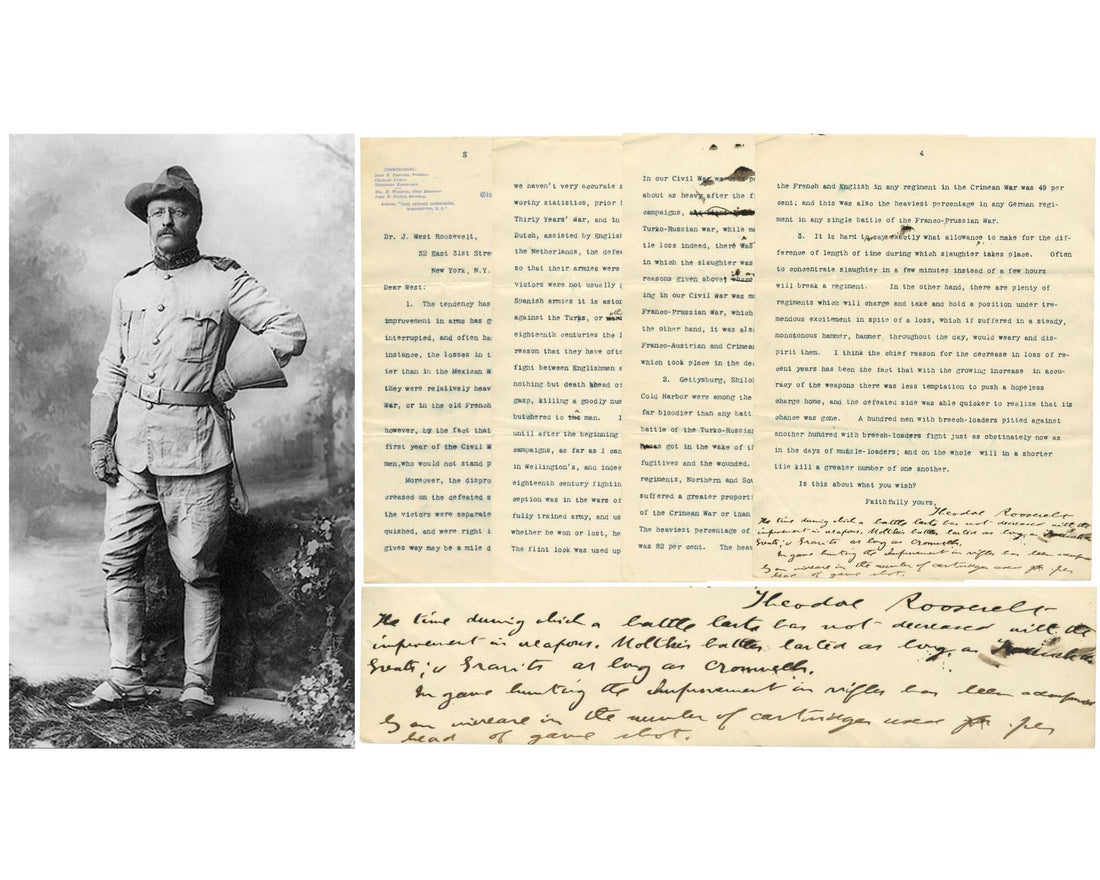 S
COMMISSIONERS:
WASHINGTON, D. C.
Dr. J. West Roosevelt,
32 East 31st Stre
New York, N.Y.
Dear West:
1. The tendency has
improvement in arms has g
interrupted, and often ha
instance, the losses in t
ter than in the Mexican W
they were relatively heav
War, or in the old French
however, by the fact that
first year of the Civil W
men,who would not stand p
Moreover, the dispro
creased on the defeated s
the victors were separate
quished, and were right i
gives way may be a mile d
we haven't very accurate s
worthy statistics, prior
Thirty Years' War, and in
Dutch, assisted by English
the Netherlands, the defe
so that their armies were
victors were not usually g
Spanish armies it is aston
against the Turks, or
eighteenth centuries the l
reason that they have ofte
fight between Englishmen a
nothing but death ahead of
gasp, killing a goodly num
butchered to the man. I
until after the beginning
campaigns, as far as I can
in Wellington's, and indee
eighteenth century fightin
ception was in the wars of
fully trained army, and us
whether he won or lost, he
The flint lock was used up
In our Civil War
about as heavy after the fi
campaigns,
Turko-Russian war, while m
tle loss indeed, there was
in which the slaughter was
reasons given above;
ing in our Civil War was m
Franco-Prussian War, which
the other hand, it was also
Franco-Austrian and Crimea
which took place in the de
2. Gettysburg, Shilo
Cold Harbor were among the
far bloodier than any batt
battle of the Turko-Russia
got in the wake of th
fugitives and the wounded.
regiments, Northern and Sou
suffered a greater proporti
of the Crimean War or than
The heaviest percentage of
was 82 per cent. The heav
4
the French and English in any regiment in the Crimean War was 49 per
cent; and this was also the heaviest percentage in any German regi-
ment in any single battle of the Franco-Prussian War.
3. It is hard to say exactly what allowance to make for the dif-
ference of length of time during which slaughter takes place. Often
to concentrate slaughter in a few minutes instead of a few hours
will break a regiment. In the other hand, there are plenty of
regiments which will charge and take and hold a position under tre-
mendous excitement in spite of a loss, which if suffered in a steady,
monotonous hammer, hammer, throughout the day, would weary and dis-
pirit them. I think the chief reason for the decrease in loss of re-
cent years has been the fact that with the growing increase in accu-
racy of the weapons there was less temptation to push a hopeless
charge home, and the defeated side was able quicker to realise that its
chance was gone. A hundred men with breech-loaders pitted against
another hundred with breech-loaders fight just as obstinately now as
in the days of muzzle-loaders; and on the whole will in a shorter
time kill a greater number of one another.
Is this about what you wish?
Faithfully yours,
Theodore Roosevelt
The time during which a battle lasts has not decreased with the
improvement in weapons. Molthis battles lasted as long as
Greats', & Grants as long as Cromwells.
In game hunting the improvement in rifles has been
by an increase in the number of cartridges used per
head of game shot.
Theodore Roosevelt
The time during which a battle lasts has not decreased with the
improvement in weapons. Molthis battles lasted as long as
Greats', & Grants as long as Cromwells.
In game hunting the improvement in rifles has been
by an increase in the number of cartridges used per
head of game shot.